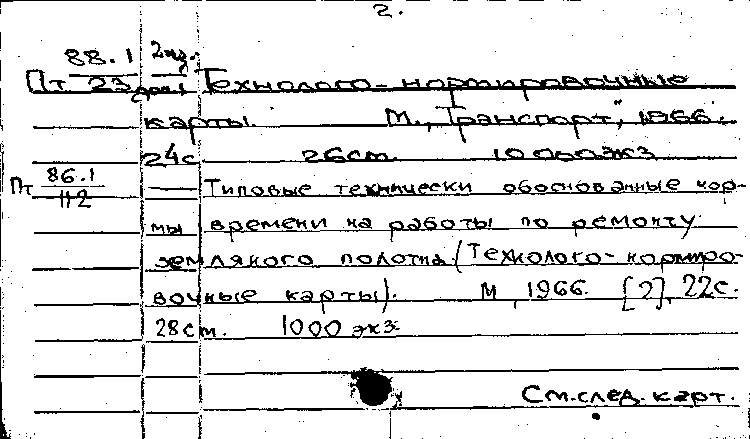 2.
88.1 2 из.
Пт 23 доп. Технолого-нормировочные
карты. М., "Транспорт", 1966.
24с 26cm. 10 000экз
Пт 86.1/112 — Типовые технически обоснованные нор-
мы времени на работы по ремонту
земляного полотна. (Технолого-нормиро-
вочные карты). М, 1966. [2], 22с.
28cm. 1000 экз.
См.след. карт.